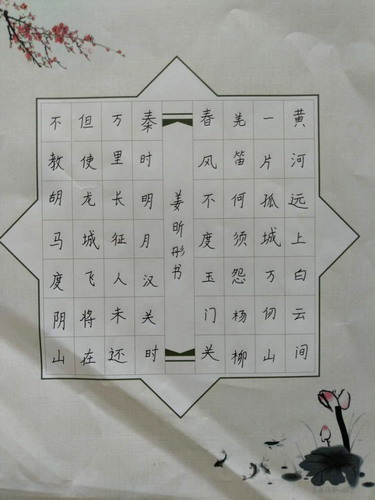 黄河远上白云间
一片孤城万仞山
羌笛何须怨杨柳
春风不度玉门关
姜昕彤书
秦时明月汉关时
万里长征人未还
但使龙城飞将在
不教胡马度阴山